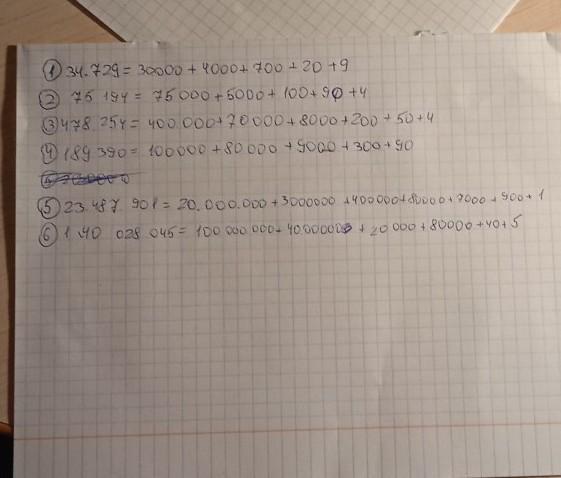 ① 34.729 = 30000 + 4000 + 700 + 20 + 9
② 75 194 = 75 000 + 5000 + 100 + 90 + 4
③ 478.254 = 400.000 + 70000 + 8000 + 200 + 50 + 4
④ 189 390 = 100000 + 80 000 + 9000 + 300 + 90
⑤ 23.487 901 = 20.000.000 + 3000000 + 400000 + 80000 + 7000 + 900 + 1
⑥ 140 028 045 = 100 000 000 + 40000000 + 20 000 + 80000 + 40 + 5